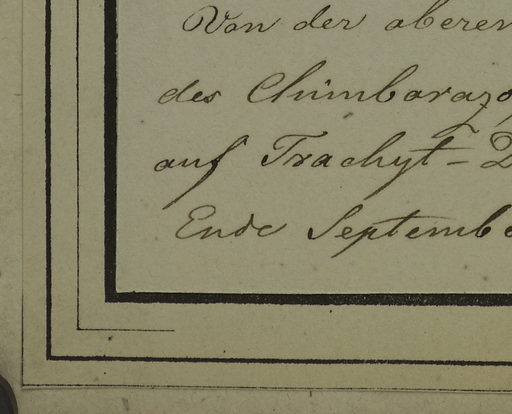 Von der oberen
des Chimborazo,
auf Trachyt-D
Ende Septembe